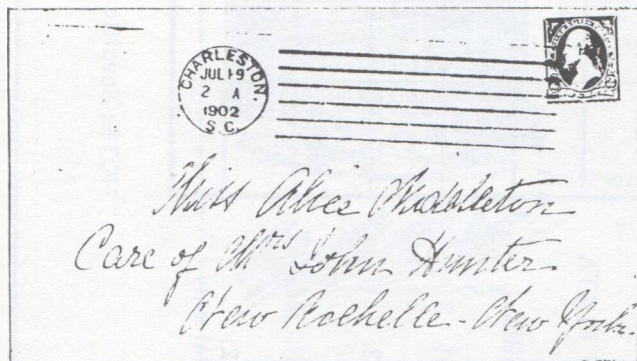 CHARLESTON,
JUL 19
2 A
1902
S.C.
Miss Alice Middleton
Care of Mrs John Hunter
New Rochelle - New York.